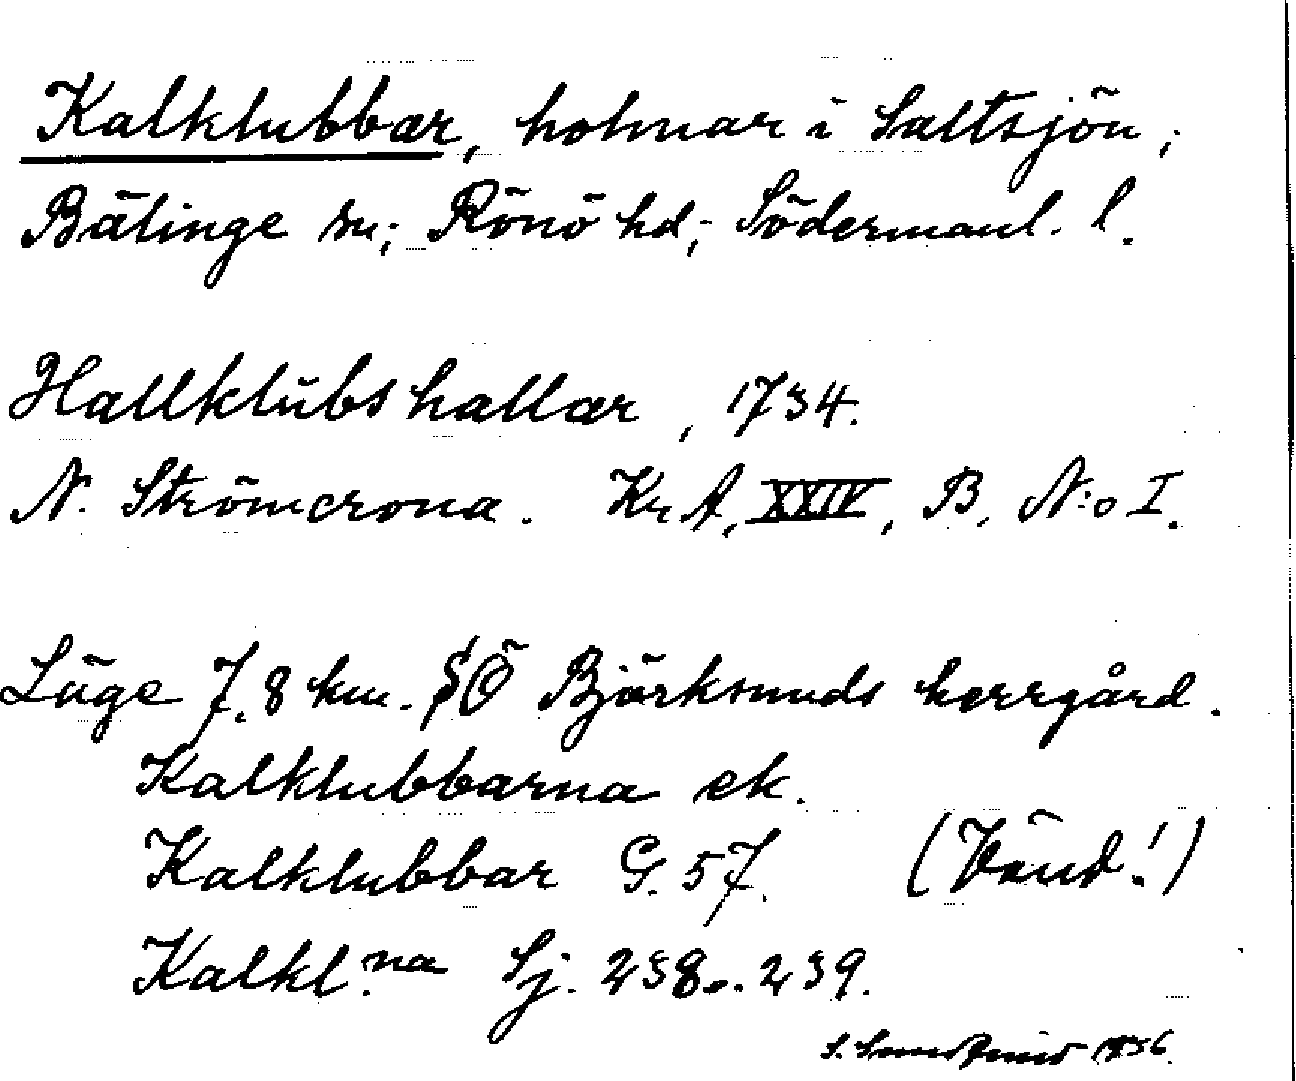 Kalklubbar, holmar i Saltsjön;
Bälinge sn; Rönö hd; Södermanl. l.
Hallklubshallar, 1734.
N. Strömcrona. Kr A, XXIV, B, N:o I.
Läge 7.8 km. SÖ Björksunds herrgård.
Kalklubbarna ek.
Kalklubbar G. 57. (Vänd!)
Kalkl.na Sj. 238.. 239.
S. 1936